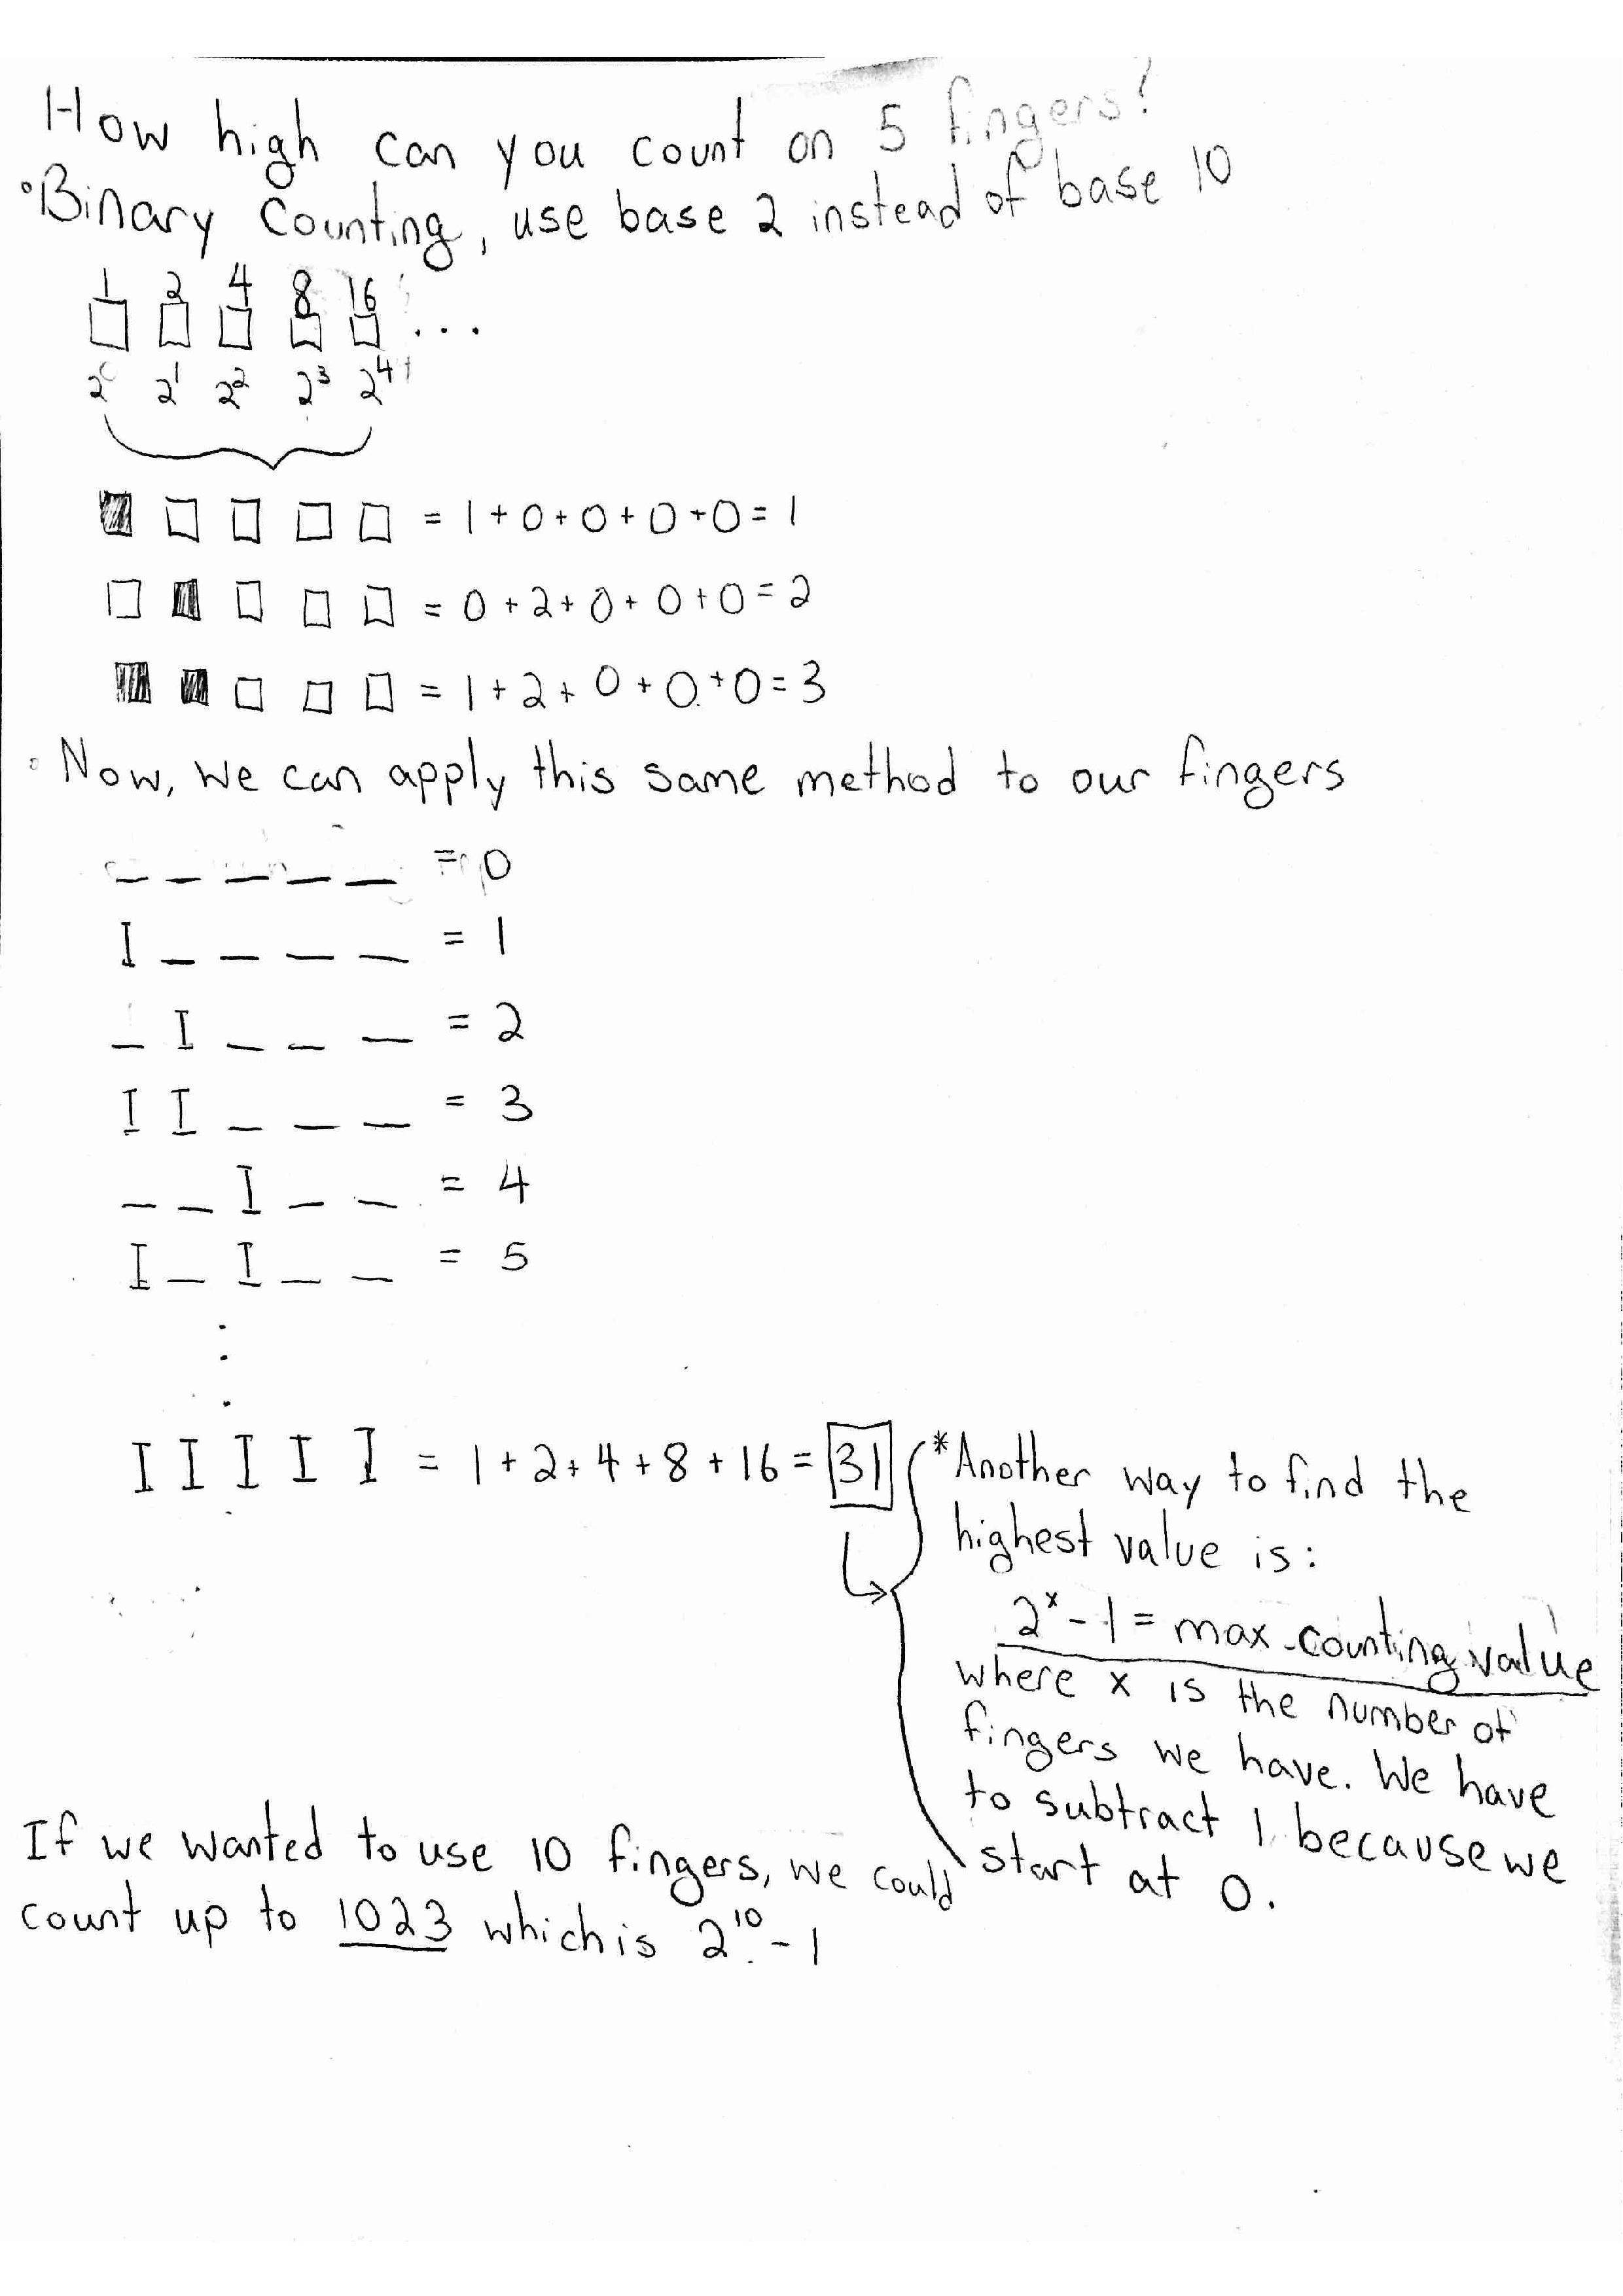 How high can you count on 5 fingers?
°Binary Counting, use base 2 instead of base 10
1 2 4 8 16
□ □ □ □ □ ...
2⁰ 2¹ 2² 2³ 2⁴
■ □ □ □ □ = 1+0+0+0+0=1
□ ■ □ □ □ = 0+2+0+0+0=2
■ ■ □ □ □ = 1+2+0+0+0=3
° Now, we can apply this same method to our fingers
_ _ _ _ _ = 0
I _ _ _ _ = 1
_ I _ _ _ = 2
I I _ _ _ = 3
_ _ I _ _ = 4
I _ I _ _ = 5
I I I I I = 1+2+4+8+16=31
*Another way to find the
highest value is:
2ˣ-1= max counting value
where x is the number of
fingers we have. We have
to subtract 1 because we
start at 0.
If we wanted to use 10 fingers, we could
count up to 1023 which is 2¹⁰-1